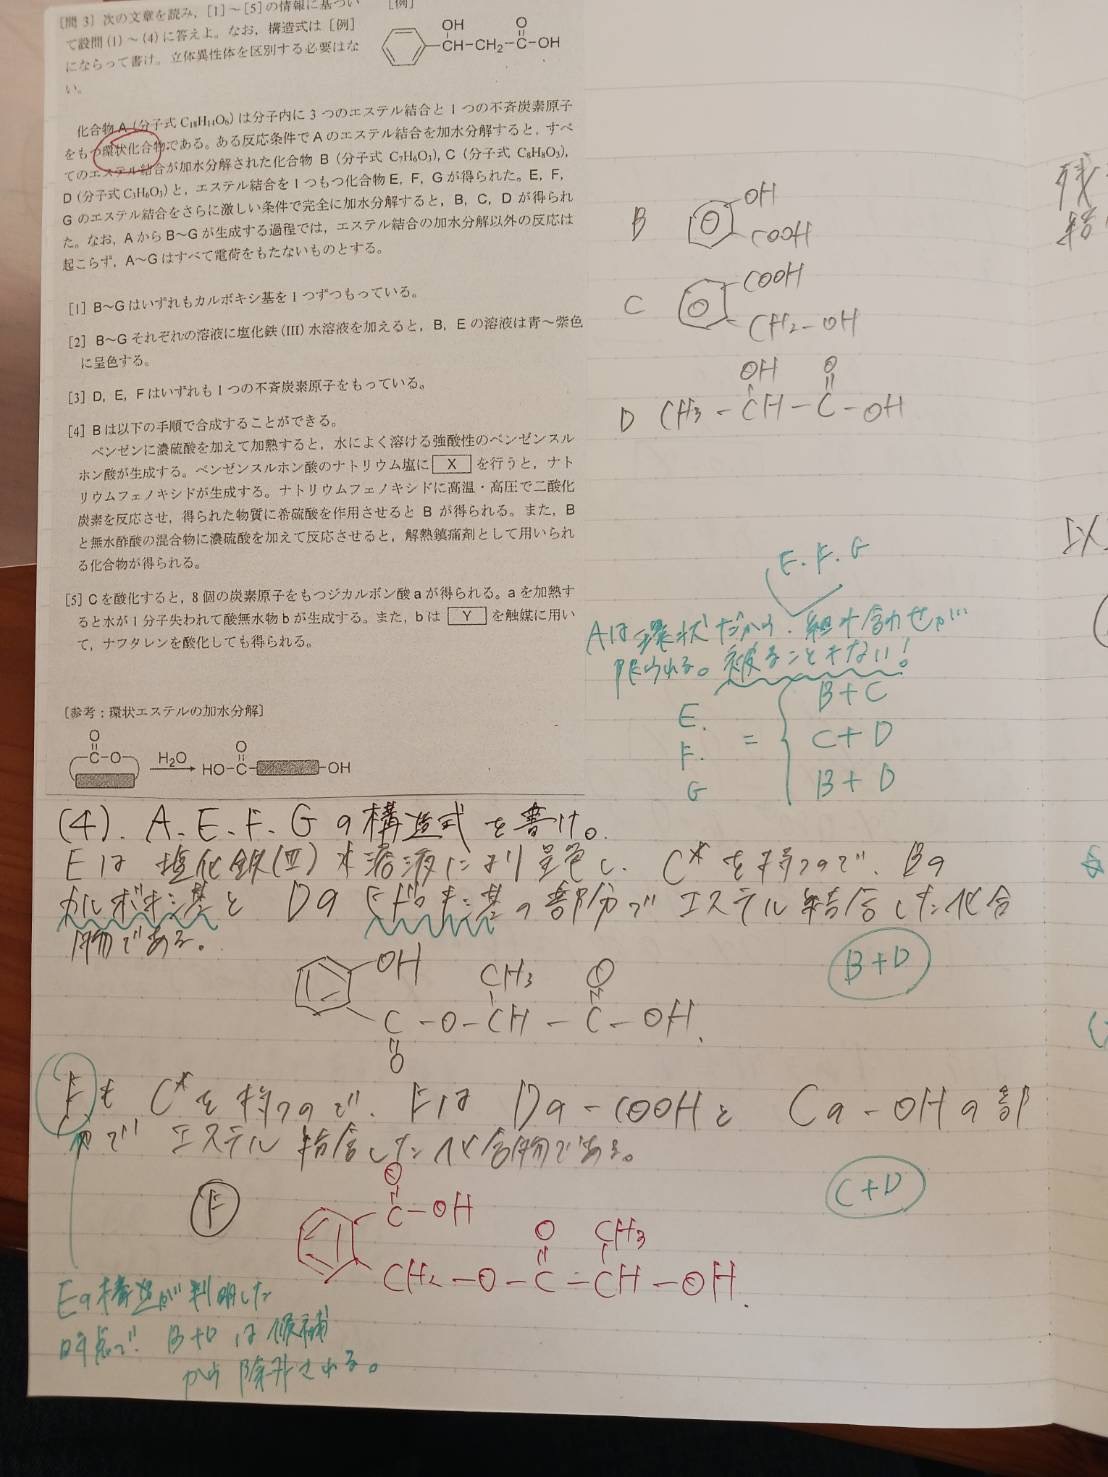 [問 3] 次の文章を読み, [1]～[5]の情報に基づい
て設問(1)～(4)に答えよ。なお, 構造式は[例]
にならって書け。立体異性体を区別する必要はな
い。
[例]
OH
O
CH-CH₂-C-OH
化合物 A (分子式 C₁₈H₁₄O₆) は分子内に 3 つのエステル結合と 1 つの不斉炭素原子
をもつ環状化合物である。ある反応条件で A のエステル結合を加水分解すると, すべ
てのエステル結合が加水分解された化合物 B (分子式 C₇H₆O₃), C (分子式 C₈H₈O₃),
D (分子式 C₃H₆O₃) と, エステル結合を 1 つもつ化合物 E, F, G が得られた。E, F,
G のエステル結合をさらに激しい条件で完全に加水分解すると, B, C, D が得られ
た。なお, A から B～G が生成する過程では, エステル結合の加水分解以外の反応は
起こらず, A～G はすべて電荷をもたないものとする。
[1] B～G はいずれもカルボキシ基を 1 つずつもっている。
[2] B～G それぞれの溶液に塩化鉄(III)水溶液を加えると, B, E の溶液は青～紫色
に呈色する。
[3] D, E, F はいずれも 1 つの不斉炭素原子をもっている。
[4] B は以下の手順で合成することができる。
ベンゼンに濃硫酸を加えて加熱すると, 水によく溶ける強酸性のベンゼンスル
ホン酸が生成する。ベンゼンスルホン酸のナトリウム塩に X を行うと, ナト
リウムフェノキシドが生成する。ナトリウムフェノキシドに高温・高圧で二酸化
炭素を反応させ, 得られた物質に希硫酸を作用させると B が得られる。また, B
と無水酢酸の混合物に濃硫酸を加えて反応させると, 解熱鎮痛剤として用いられ
る化合物が得られる。
[5] C を酸化すると, 8 個の炭素原子をもつジカルボン酸 a が得られる。a を加熱す
ると水が 1 分子失われて酸無水物 b が生成する。また, b は Y を触媒に用い
て, ナフタレンを酸化しても得られる。
[参考：環状エステルの加水分解]
O
C-O
H₂O
O
HO-C
OH
B
OH
COOH
C
COOH
CH₂-OH
D
OH
O
CH₃-CH-C-OH
E.F.G
Aは環状だから、組み合わせが
限られる。被ることもない!
E.
F.
G
=
B+C
C+D
B+D
(4). A、E、F、Gの構造式を書け。
Eは塩化鉄(Ⅲ)水溶液により呈色し、C*を持つので、Bの
カルボキシ基とDのヒドロキシ基の部分でエステル結合した化合
物である。
B+D
OH
CH₃
O
C-O-CH-C-OH.
O
FもC*を持つので、FはDの-COOHとCの-OHの部
分でエステル結合した化合物である。
C+D
F
O
C-OH
O
CH₃
CH₂-O-C-CH-OH.
Eの構造が判明した
時点で、B+Dは候補
から除外される。
残
結